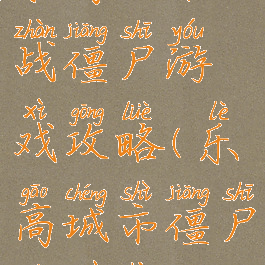 zhàn jiāng shī yóu
战僵尸游
xì gōng lüè lè
戏攻略(乐
gāo chéng shì jiāng shī
高城市僵尸